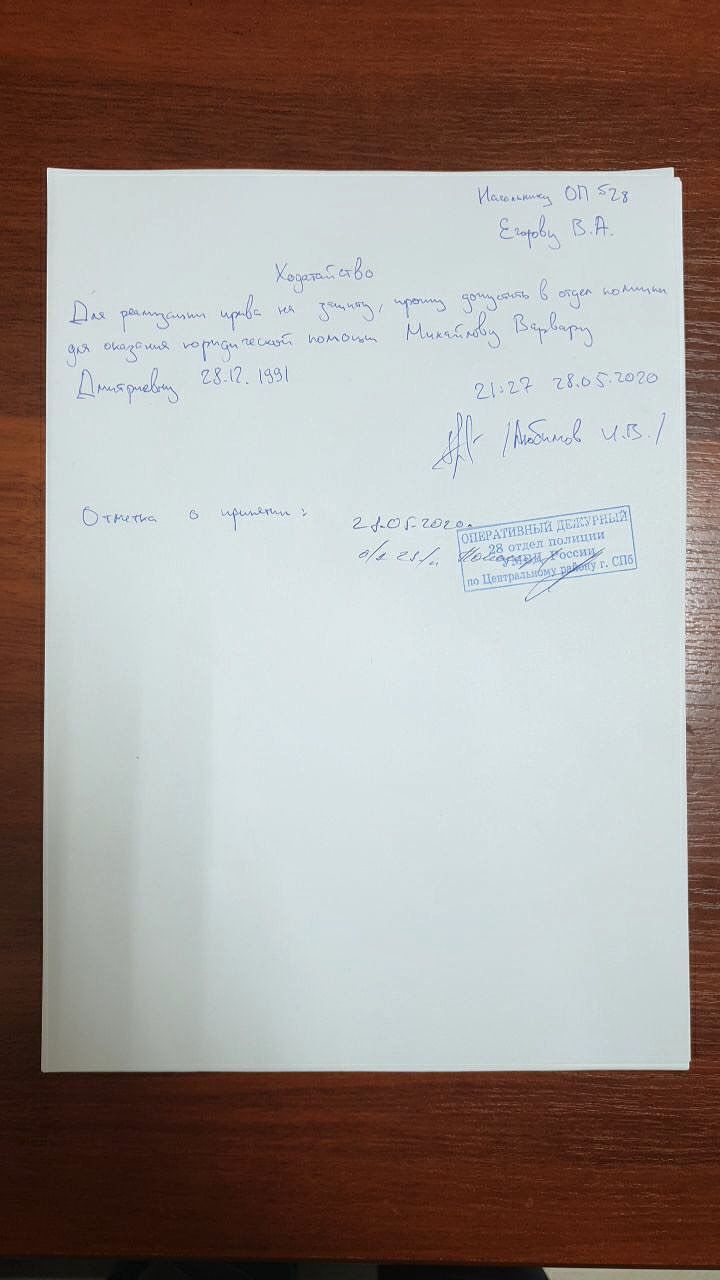 Начальнику ОП №28
Егорову В.А.
Ходатайство
Для реализации права на защиту, прошу допустить в отдел полиции
для оказания юридической помощи Михайлову Варвару
Дмитриевну 28.12.1991
21:27 28.05.2020
/Любимов И.В./
Отметка о принятии:
28.05.2020г.
ОПЕРАТИВНЫЙ ДЕЖУРНЫЙ
28 отдел полиции
УМВД России
по Центральному району г. СПб
о/д 28 о/п